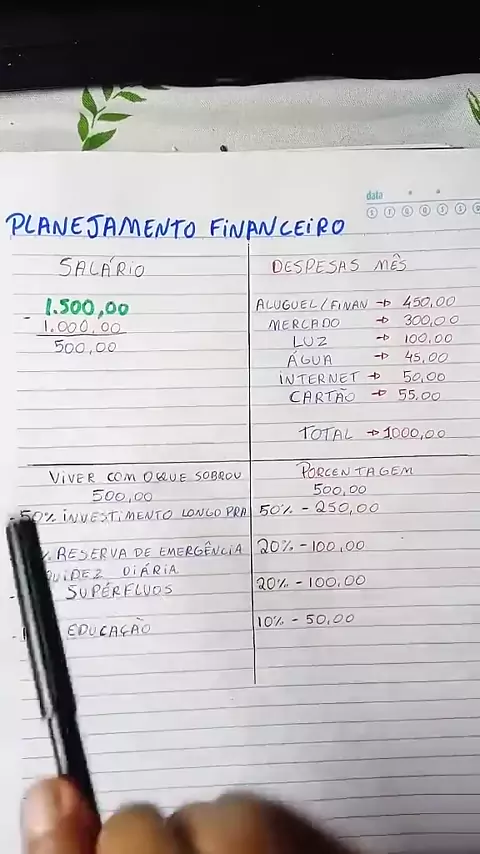 data
PLANEJAMENTO FINANCEIRO
SALÁRIO
1.500,00
- 1.000,00
500,00
DESPESAS MÊS
ALUGUEL/FINAN → 450.00
MERCADO → 300,00
LUZ → 100,00
ÁGUA → 45,00
INTERNET → 50,00
CARTÃO → 55.00
TOTAL → 1000,00
VIVER COM O QUE SOBROU
500,00
- 50% INVESTIMENTO LONGO PRA
% RESERVA DE EMERGÊNCIA
DIÁRIA
SUPÉRFLUOS
EDUCAÇÃO
PORCENTAGEM
500,00
50% - 250,00
20% - 100,00
20% - 100,00
10% - 50,00